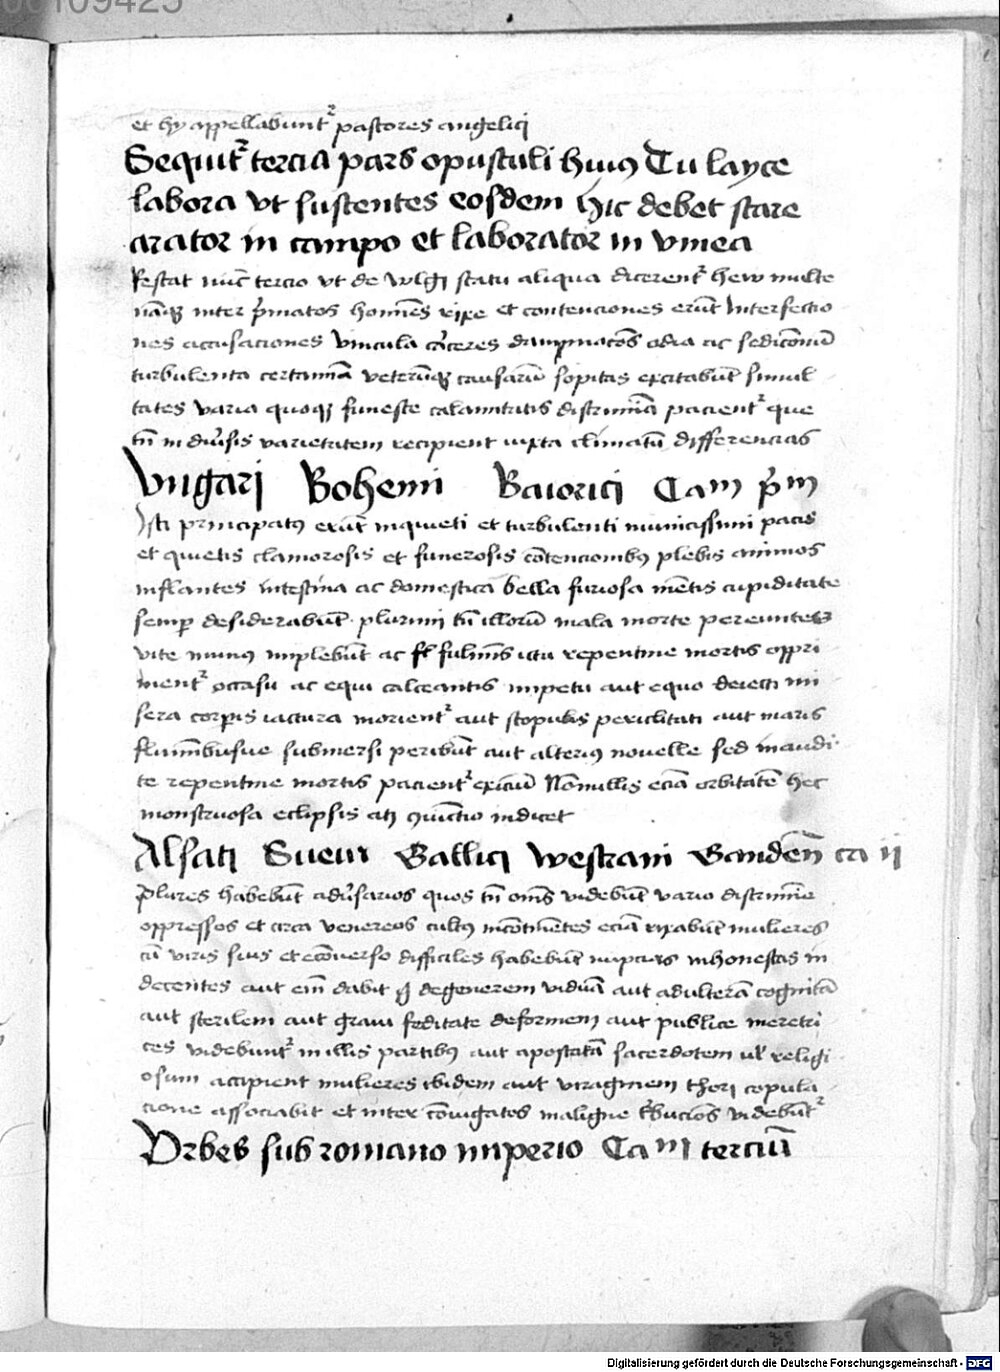 00109425
et hy appellabunt² pastores angelici
Sequit² tercia pars opusculi huiꝰ Tu layce
labora vt sustentes eosdem hic debet stare
arator in campo et laborator in vinea
Restat nūc tercio vt de wlgi statu aliqua dicerent² hew multe
nāqꝫ inter p̄matos homīes rixe et contenciones erūt interfectio
nes accusaciones vincula cārceres dampnacōes odia ac sedicōnū
turbulenta certamīa veterūqꝫ causarū sopitas excitabūt simul
tates varia quoqꝫ funeste calamitatis discrimīa pacient² que
tn̄ in diu̾sis varietatem recipient iuxta climatū differencias
Vngari Bohemi Baiorici Cam p̄m
Isti principatꝰ erūt inquieti et turbulenti inimicissimi pacis
et quietis clamorosis et funerosis cōtencionibꝰ plebis animos
inflantes intestina ac domestica bella furiosa mētis cupiditate
semꝑ desiderabūt plurimi tn̄ illorū mala morte pereuntes
vite munꝰ implebūt ac fulmīs ictu repentine mortis oppri
ment² occasu ac equi calceantis impetu aut equo deiecti mi
sera corꝑis iactura morient² aut scopulis periclitati aut maris
flumībusue submersi peribūt aut alteriꝰ nouelle sed inaudi
te repentine mortis pacient² exiciū Nōnullis eciā orbitatē hec
monstruosa eclipsis atqꝫ cōiūctio indicet
Alsati Sueui Gallici westrani Ganden̄ ca ij
Plures habebūt adu̾sarios quos tn̄ om̄s videbūt vario discrimīe
oppressos et circa venereos cultꝰ incōtinētes eciā rixabūt mulieres
cū viris suis et ecōuerso difficiles habebūt nupcias inhonestas in
decentes aut em̄ dabit qꝫ degenerem viduā aut adulterā cognitā
aut sterilem aut graui feditate deformem aut publice meretri
ces videbunt² in illis partibꝰ aut apostatā sacerdotem ul̄ religi
osum accipient mulieres ibidem aut viraginem thori copula
cione associabit et inter cōiugatos maligne t̾bucōes videbūt²
Vrbes sub romano imperio Cam terciū
Digitalisierung gefördert durch die Deutsche Forschungsgemeinschaft - DFG